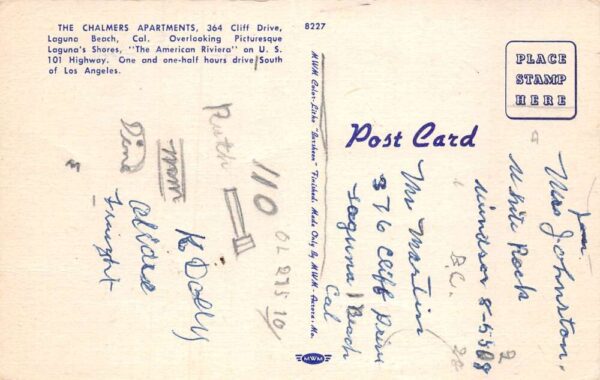 THE CHALMERS APARTMENTS, 364 Cliff Drive,
Laguna Beach, Cal. Overlooking Picturesque
Laguna's Shores, "The American Riviera" on U. S.
101 Highway. One and one-half hours drive South
of Los Angeles.
8227
MWM Color-Litho "Darshean" Finished. Made Only By MWM - Aurora, Mo.
Post Card
PLACE
STAMP
HERE
Mrs Johnston,
White Rock
Windsor 8-5508
2
B.C.
28
Mr Martin
376 Cliff Drive
Laguna Beach
Cal
OL 27510
110
Ruth
K Dolly
MWM